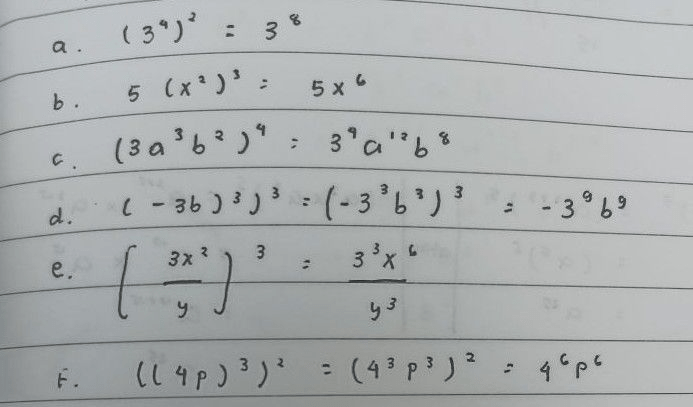 a. (3⁴)² = 3⁸
b. 5 (x²)³ = 5x⁶
c. (3a³b²)⁴ = 3⁴a¹²b⁸
d. (-3b)³)³ = (-3³b³)³ = -3⁹b⁹
e. [3x²/y]³ = 3³x⁶/y³
F. ((4p)³)² = (4³p³)² = 4⁶p⁶